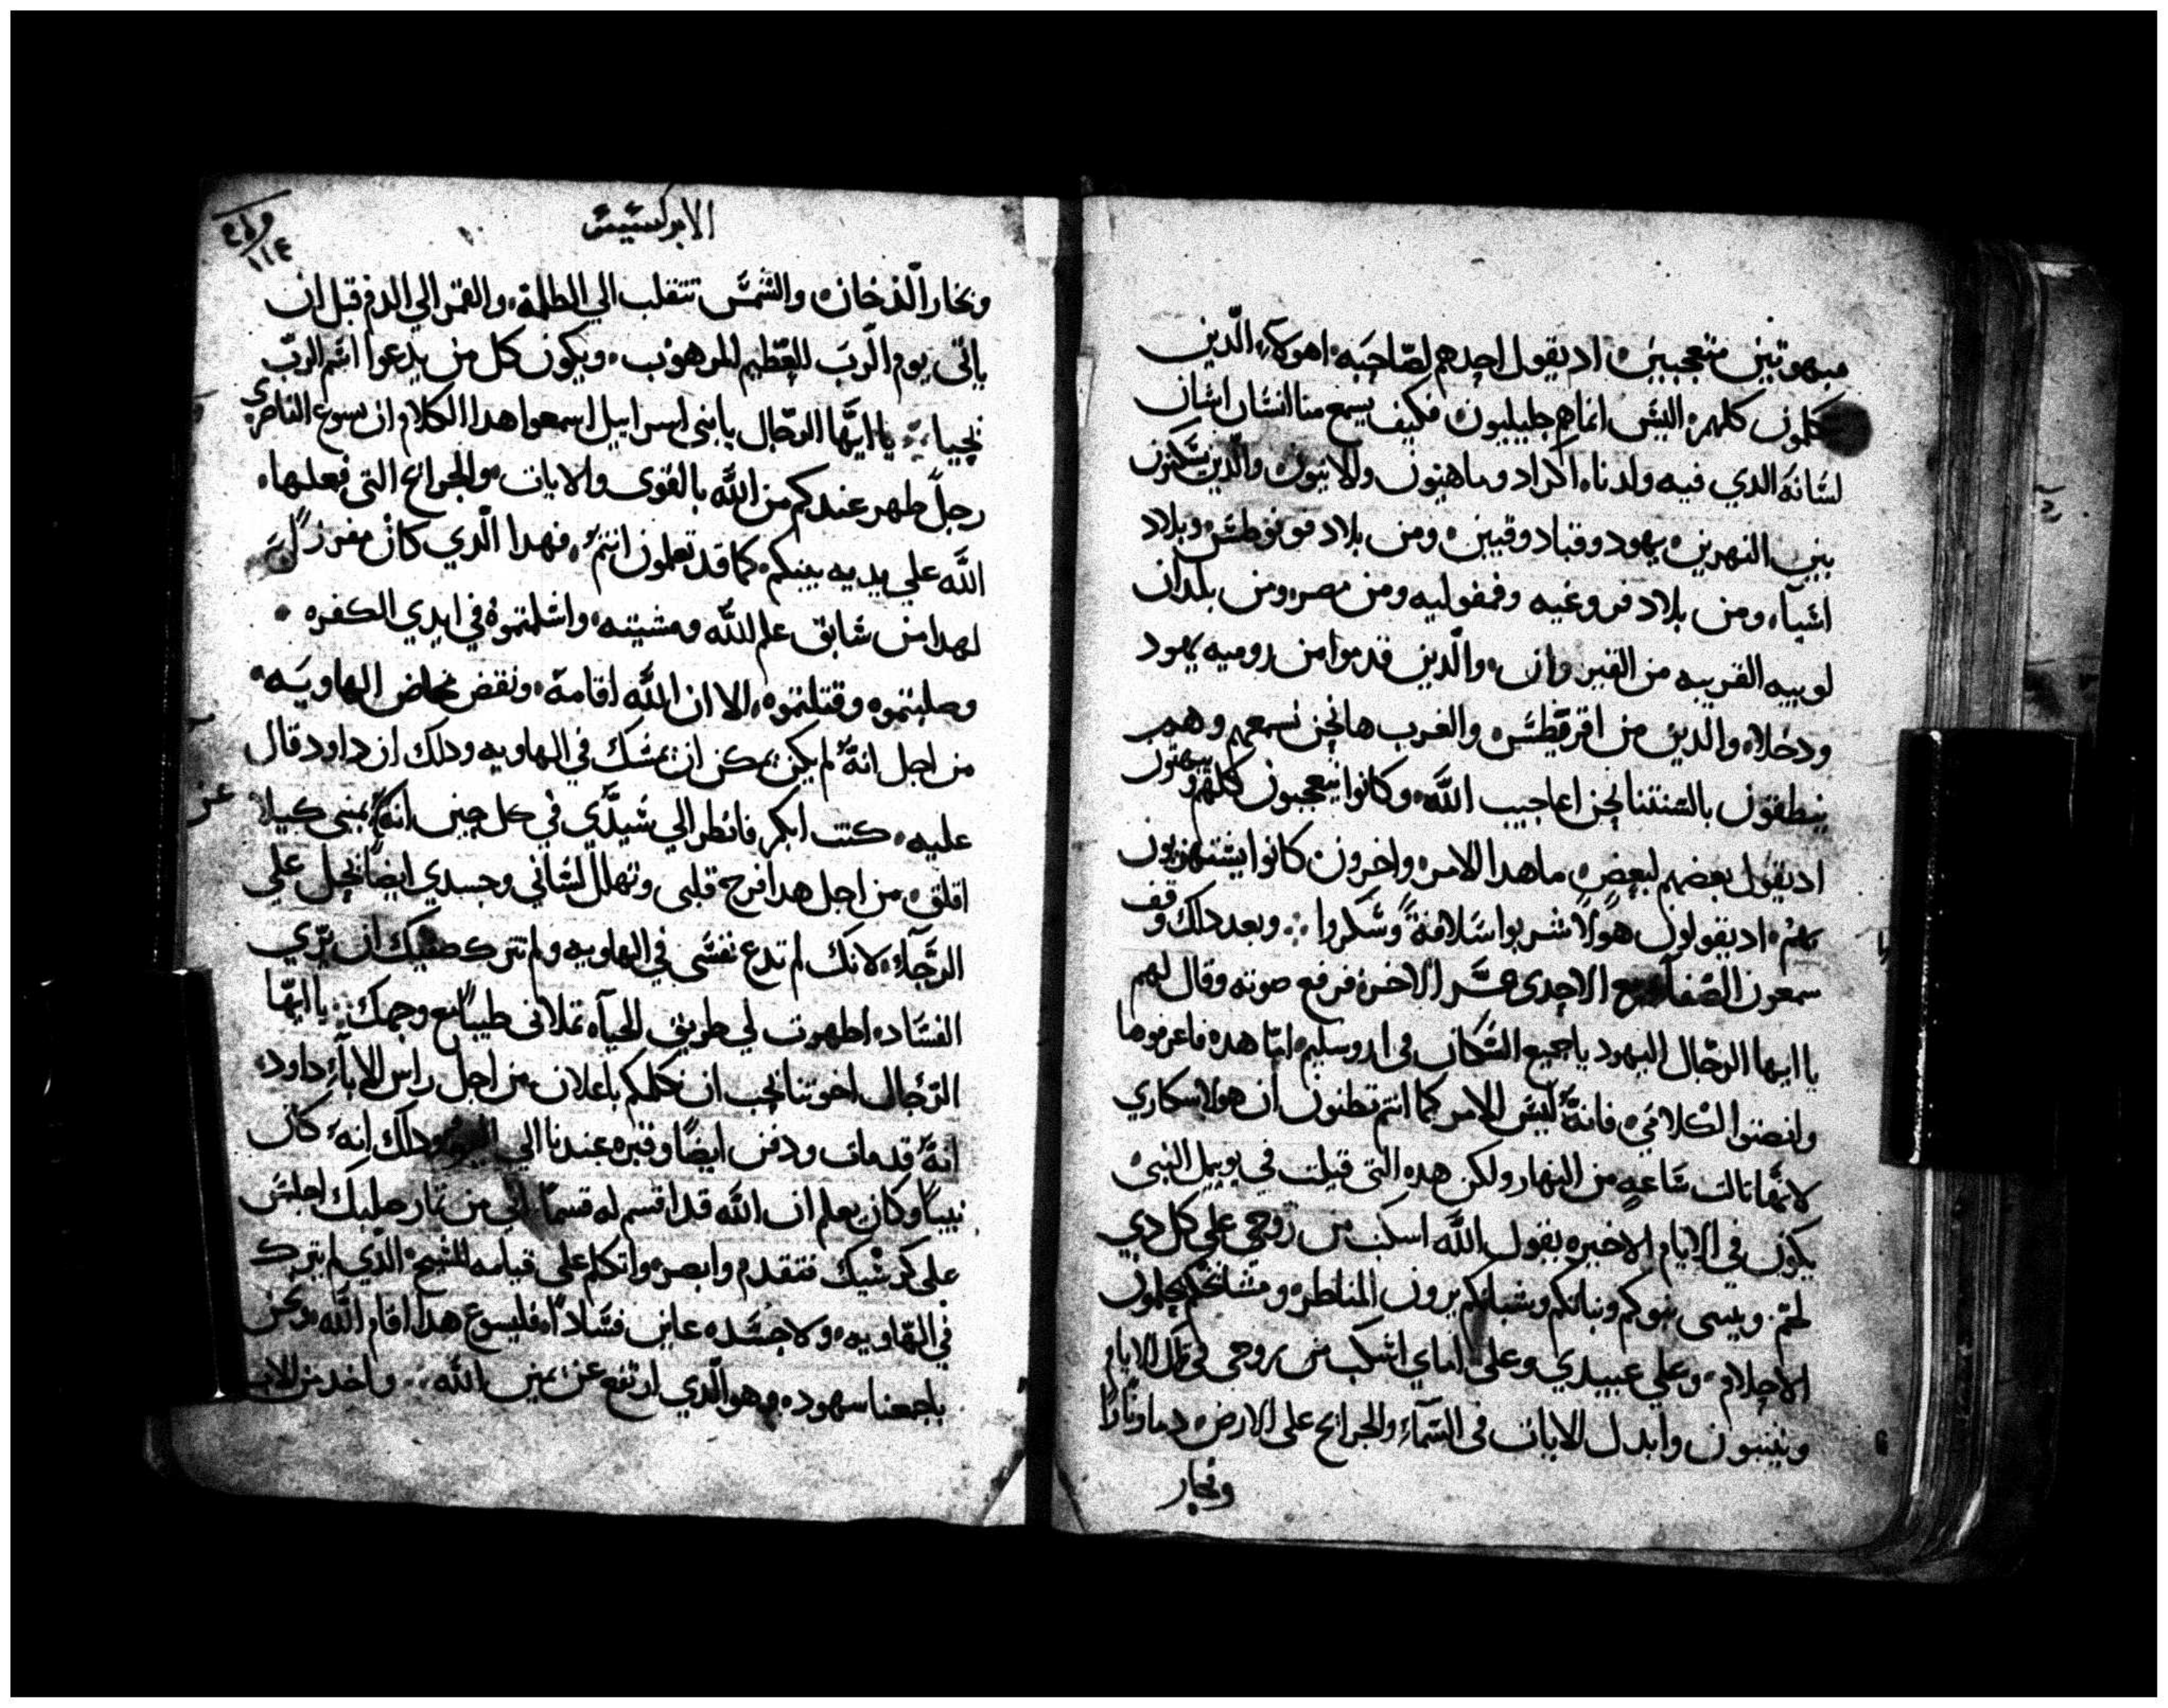 مبهوتين متعجبين اد يقول احدهم لصاحبه اهولاء الدين
كلهم اليس انما هم جليليون فكيف يسمع منا انسان انسان
لسانه الدي فيه ولدنا اكراد وماهيون والانيون والدين يسكنون
بين النهرين يهود وقبادوقيين ومن بلاد فونوطس وبلاد
اسيا ومن بلاد فروغيه وفمفوليه ومن مصر ومن بلدان
لوبيه القريبه من القيروان والدين قدموا من روميه يهود
ودخلاء والدين من اقرقيطس والعرب ها نحن نسمعهم وهم
ينطقون بالسنتنا نحن اعاجيب الله وكانوا يتعجبون كلهم ويبهتون
اد يقول بعضهم لبعض ما هدا الامر واخرون كانوا يستهزيون
بهم اد يقولون هولا شربوا سلافة وسكروا وبعد دلك وقف
سمعون الصفا مع الاحدى عشر الاخر فرفع صوته وقال لهم
يا ايها الرجال اليهود يا جميع السكان في اروسليم اما هده فاعرفوها
وانصتوا لكلامي فانه ليس الامر كما انتم تظنون ان هولا سكاري
لانها تالت ساعه من النهار ولكن هده التي قيلت في يوييل النبي
يكون في الايام الاخيره يقول الله اسكب من روحي علي كل دي
لحم ويتنبى بنوكم وبناتكم وشبانكم يرون المناظر ومشايخكم يحلمون
الاحلام وعلي عبيدي وعلى اماي اسكب من روحي في تلك الايام
ويتنبون وابدل الايات في السماء والجرايح على الارض دما ونارا
وبخار
الابركسيس
١١٤
وبخار الدخان والشمس تنقلب الي الظلمة والقمر الي الدم قبل ان
ياتي يوم الرب العظيم المرهوب ويكون كل من يدعوا اسم الرب
يحيا يا ايها الرجال يا بني اسراييل اسمعوا هدا الكلام ان يسوع الناصري
رجل ظهر عندكم من الله بالقوى والايات والجرايح التي فعلها
الله علي يديه بينكم كما قد تعلمون انتم فهدا الدي كان مفرزا
لهدا من سابق علم الله ومشيته واسلمتموه في ايدي الكفره
وصلبتموه وقتلتموه الا ان الله اقامه ونقض مخاض الهاويه
من اجل انه لم يكن يمكن ان يمسك في الهاويه ودلك ان داود قال
عليه كنت ابكر فانظر الي سيدي في كل حين انه عن يميني كيلا
اقلق من اجل هدا فرح قلبي وتهلل لساني وجسدي ايضا يحل علي
الرجاء لانك لم تدع نفسي في الهاويه ولم تترك صفيك ان يري
الفساد اظهرت لي طريق الحياه تملاني طيبا مع وجهك يا ايها
الرجال اخوتنا يجب ان نكلمكم باعلان من اجل راس الاباء داود
انه قد مات ودفن ايضا وقبره عندنا الي اليوم ودلك انه كان
نبيا وكان يعلم ان الله قد اقسم له قسما اني من تمار صلبك اجلس
على كرسيك فتقدم وابصر واتكلم على قيامه المسيح الدي لم يترك
في الهاويه ولا جسده عاين فسادا فليسوع هدا اقام الله ونحن
باجمعنا سهوده وهو الدي ارتفع عن يمين الله واخد من الاب